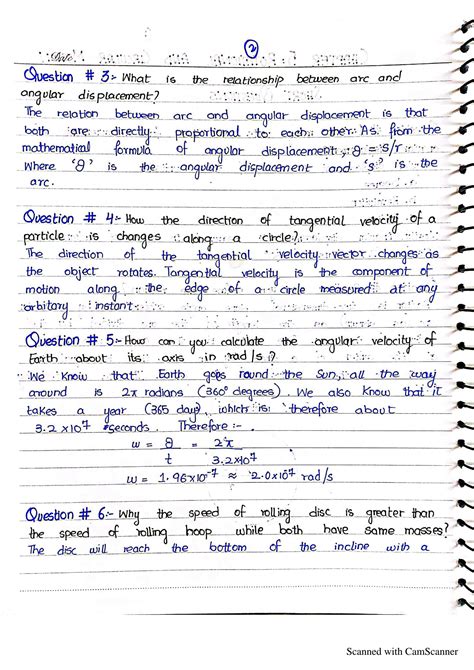 2
Date:
Question # 3:- What is the relationship between arc and
angular displacement?
The relation between arc and angular displacement is that
both are directly proportional to each other. As from the
mathematical formula of angular displacement, θ = s/r
Where 'θ' is the angular displacement and 's' is the
arc.
Question # 4:- How the direction of tangential velocity of a
particle is changes along a circle?
The direction of the tangential velocity vector changes as
the object rotates. Tangential velocity is the component of
motion along the edge of a circle measured at any
arbitary instant.
Question # 5:- How can you calculate the angular velocity of
Earth about its axis in rad/s?
We Know that Earth goes round the Sun, all the way
around is 2π radians (360° degrees). We also Know that it
takes a year (365 day), which is therefore about
3.2×10⁷ seconds. Therefore:-
w = θ/t = 2π/3.2×10⁷
w = 1.96×10⁻⁷ ≈ 2.0×10⁷ rad/s
Question # 6:- Why the speed of rolling disc is greater than
the speed of rolling hoop while both have same masses?
The disc will reach the bottom of the incline with a
Scanned with CamScanner